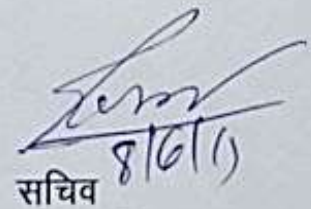 8/6/11
सचिव